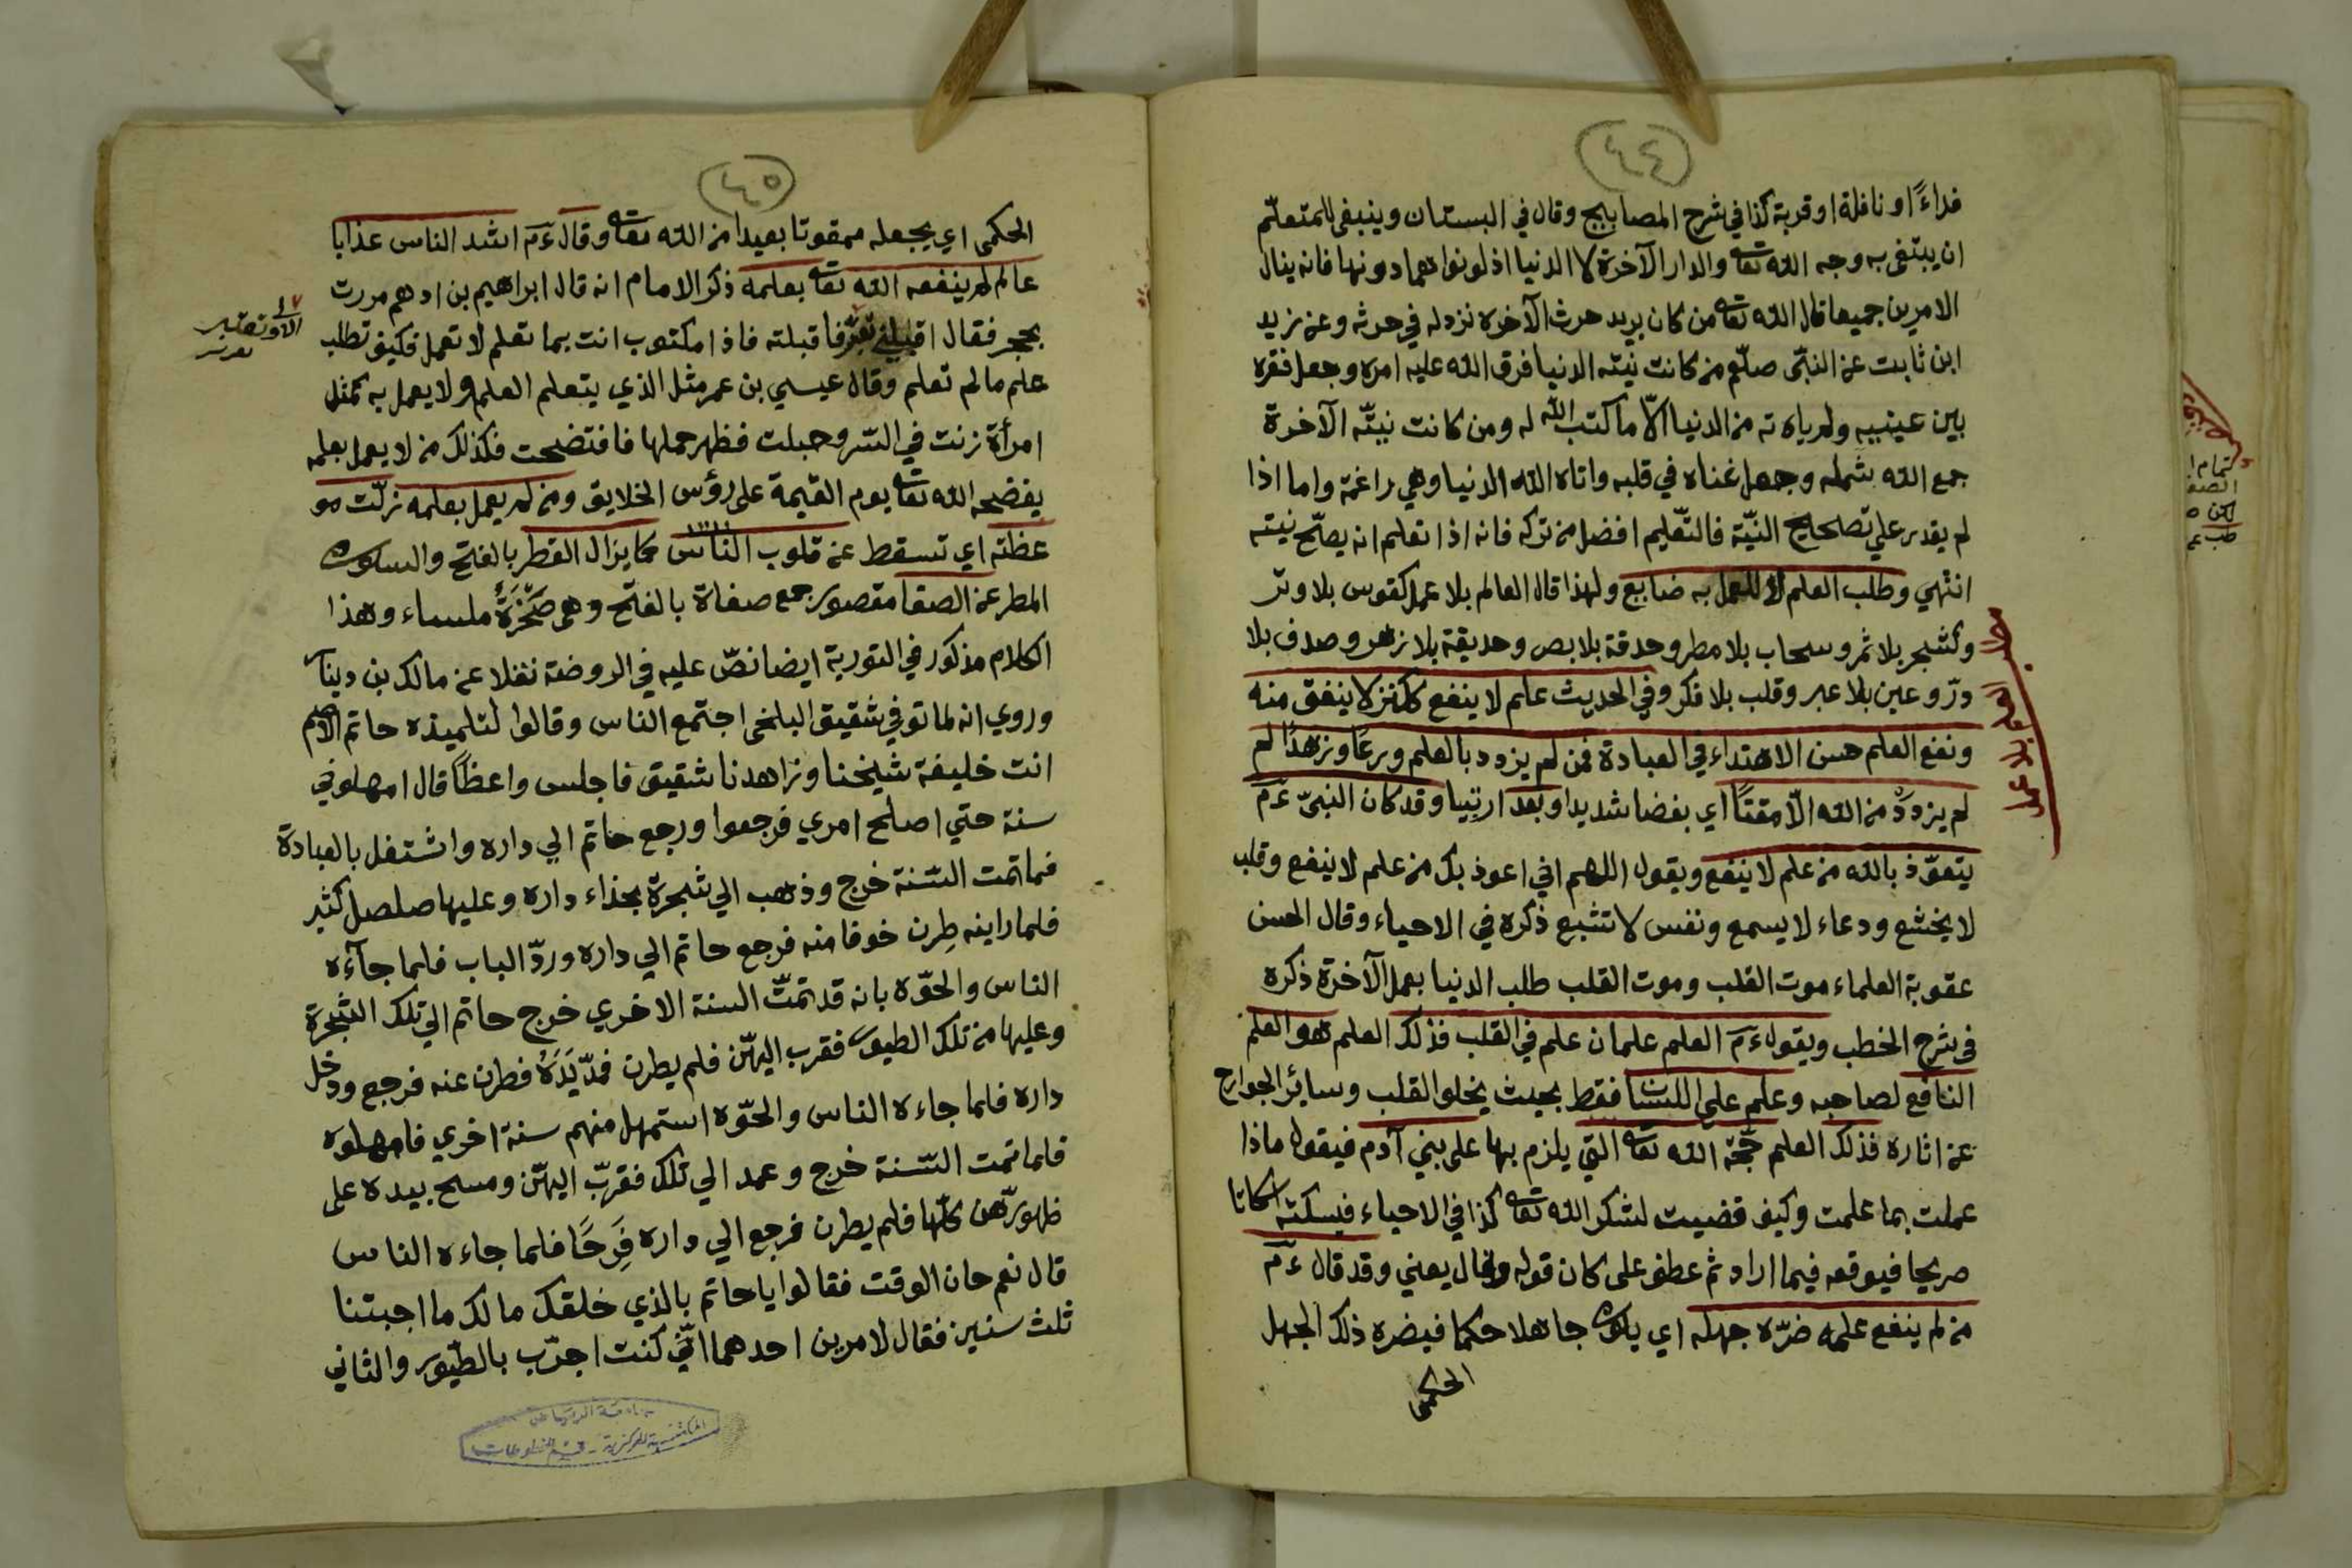 ٤٤
فداءً او نافلة او قربة كذا في شرح المصابيح وقال في البستان وينبغى للمتعلّم
ان يبتغى به وجه الله تعا والدار الآخرة لا الدنيا اذ لو نواهما دونها فانه ينال
الامرين جميعا قال الله تعا من كان يريد حرث الآخرة نزد له في حرثه وعن زيد
ابن ثابت عن النبّى صلّم من كانت نيته الدنيا فرق الله عليه امره وجعل فقره
بين عينيه ولم ياته من الدنيا الّا ما كتب الله له ومن كانت نيتّه الآخرة
جمع الله شمله وجعل غناه في قلبه واتاه الله الدنيا وهي راغمة واما اذا
لم يقدر علي تصحيح النيّة فالتّعليم افضل من تركه فانه اذا تعلم انه يصحّ نيته
انتهي وطلب العلم لا للعمل به ضايع ولهذا قال العالم بلا عمل كقوس بلا وتر
وكشجر بلا ثمر وسحاب بلا مطر وحدقة بلا بصر وحديقة بلا زهر وصدف بلا
درّ وعين بلا عبر وقلب بلا فكر وفي الحديث علم لا ينفع ككنز لا ينفق منه
ونفع العلم حسن الاهتداء في العبادة فمن لم يزدد بالعلم ورعًا وزهدًا لم
لم يزددْ من الله الّا مقتًا اي بغضا شديدا وبعد ارتبيا وقد كان النبىّ ءم
يتعوّذ بالله من علم لا ينفع ويقول اللهم اني اعوذ بك من علم لا ينفع وقلب
لا يخشع ودعاء لا يسمع ونفس لا تشبع ذكره في الاحياء وقال الحسن
عقوبة العلماء موت القلب وموت القلب طلب الدنيا بعمل الآخرة ذكره
في شرح الخطب ويقول ءم العلم علمان علم في القلب فذلك العلم هو العلم
النافع لصاحبه وعلم على اللسا فقط بحيث يخلو القلب وسائر الجوارح
عن اثاره فذلك العلم حجّة الله تعا التي يلزم بها على بني آدم فيقول ماذا
عملت بما علمت وكيف قضيت لشكر الله تعا كذا في الاحياء فيسكته اسكاتا
صريحا فيوقعه فيما اراد ثم عطف على كان قوله وقال يعني وقد قال ءم
من لم ينفع علمه ضرّه جهله اي يكون جاهلا حكما فيضره ذلك الجهل
الحكمى
العلم بلا عمل
٤٥
الحكمى اي يجعله ممقوتا بعيدا من الله تعا وقال ءم اشد الناس عذابا
عالم لم ينفعه الله تعا بعلمه ذكر الامام انه قال ابراهيم بن ادهم مررت
بحجر فقال اقلبني تعبّر فاقبلته فاذا مكتوب انت بما تعلم لا تعمل فكيف تطلب
علم مالم تعلم وقال عيسي بن عمر مثل الذي يتعلم العلم ولا يعمل به كمثل
امرأة زنت في السّر وحبلت فظهر حملها فافتضحت فكذلك من لا يعمل بعلمه
يفضحه الله تعا يوم القيمة على رؤس الخلايق ومن لم يعمل بعلمه زلّت مو
عظته اي تسقط عن قلوب النّاس كما يزال القطر بالفتح والسكون
المطر عن الصفا مقصور جمع صفاة بالفتح وهى صَخْرَةٌ ملساء وهذا
الكلام مذكور في التورية ايضا نصّ عليه في الروضة نقلا عن مالك بن دينا
وروي انه لما توفي شقيق البلخى اجتمع الناس وقالوا لتلميذه حاتم الاصم
انت خليفة شيخنا وزاهدنا شقيق فاجلس واعظًا قال امهلوني
سنة حتي اصلح امري فرجعوا ورجع حاتم الي داره واشتغل بالعبادة
فماتمت السّنة خرج وذهب الي شجرة بحذاء داره وعليها صلصل كثير
فلما راينه طِرن خوفا منه فرجع حاتم الي داره وردّ الباب فلما جآءه
الناس والحوّه بانه قد تمّت السنة الاخري خرج حاتم الي تلك الشجرة
وعليها من تلك الطيور فقرب اليهّن فلم يطرن فمدّ يَدَهُ فطرن عنه فرجع ودخل
داره فلما جاءه الناس والحوّه استمهل منهم سنة اخري فامهلوه
فلما تمت السّنة خرج وعمد الي تلك فقربّ اليهّن ومسح بيده على
ظهورهّن كلّها فلم يطرن فرجع الي داره فَرِحًا فلما جاءه الناس
قال نعم حان الوقت فقالوا يا حاتم بالذي خلقك مالك ما اجبتنا
ثلث سنين فقال لامرين احدهما انّي كنت اجرّب بالطّيور والثاني
جامعة الرياض
المكتبة المركزية - قسم المخطوطات